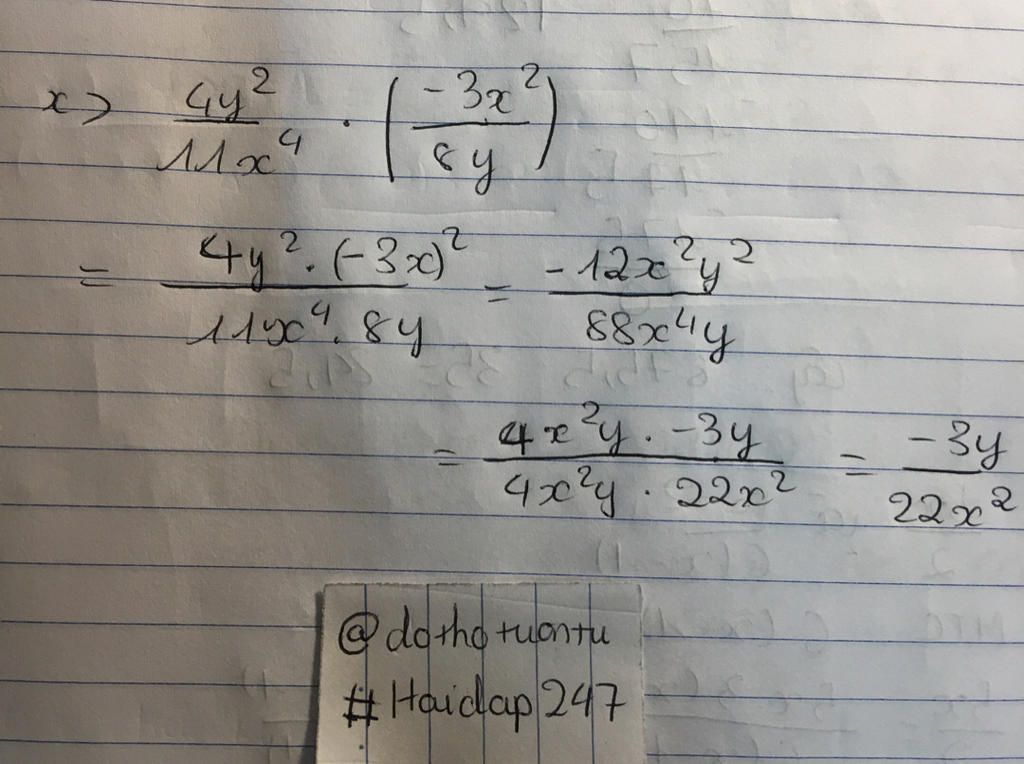 x> \frac{4y^2}{11x^4} \cdot \left(\frac{-3x^2}{8y}\right)
= \frac{4y^2 \cdot (-3x)^2}{11x^4 \cdot 8y} = \frac{-12x^2y^2}{88x^4y}
= \frac{4x^2y \cdot -3y}{4x^2y \cdot 22x^2} = \frac{-3y}{22x^2}
@dothotuontu
#Hoidap247